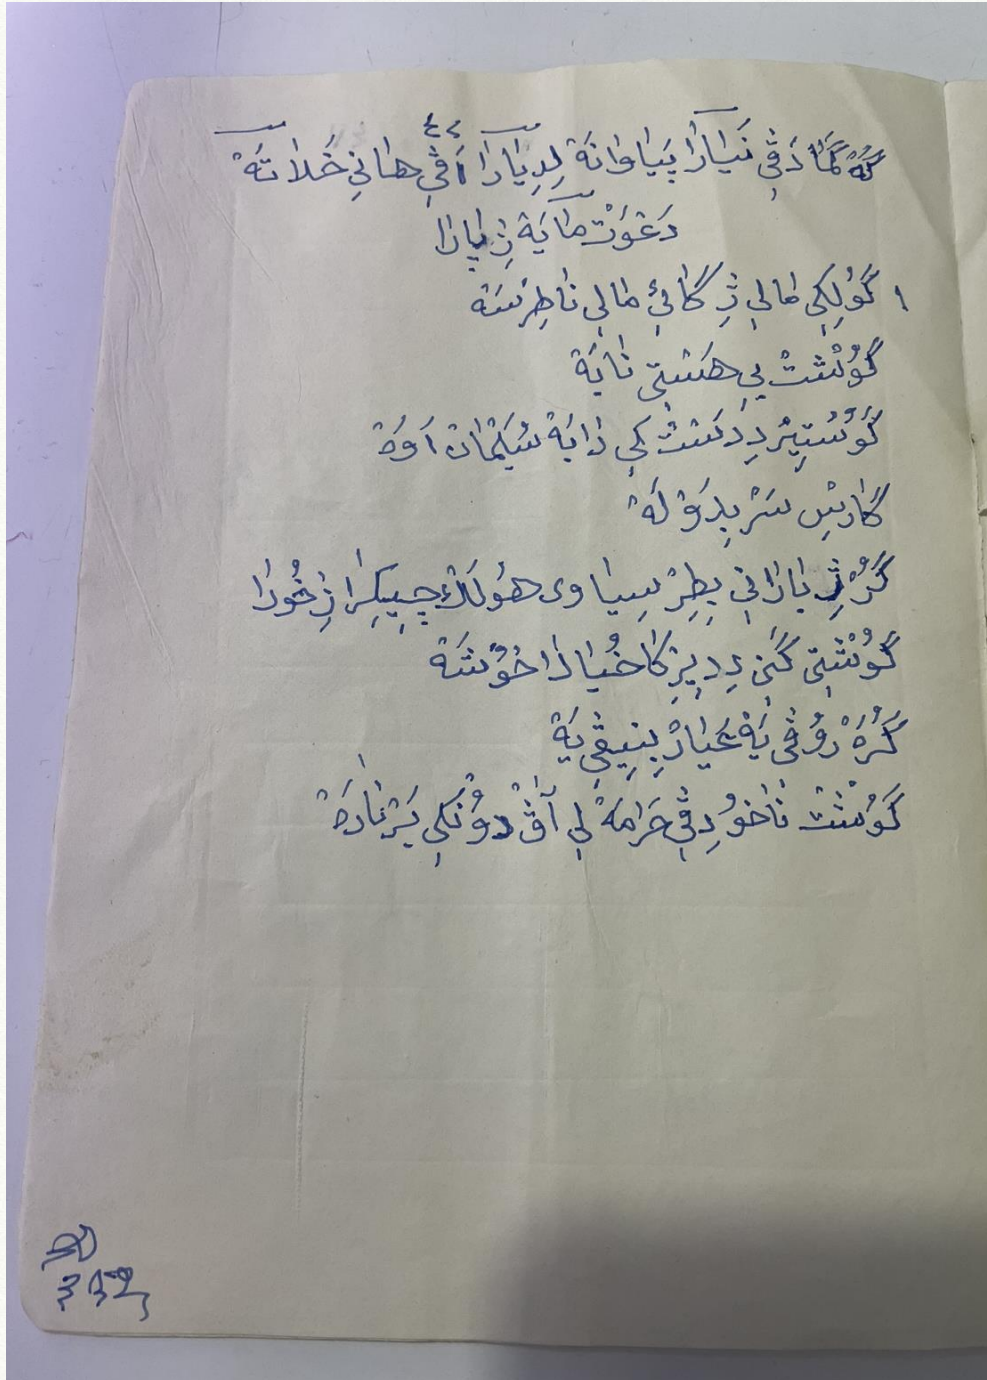 گَهْ گَمَا دَڤِي نَيَارَا پَيَاوَانَهْ لِدِيَارَا اَڤِي هَانِي خَلَاتَهْ
دَعْوَتْ مَايَهْ ژِ يَارَا
١ گَوْلِكِي مَالِي ژِ گَائِي مَالِي نَاطِرْسَهْ
گَوْشْتْ بِي هَسْتِي نَابَهْ
گَوْسْتِيرْ دِدَسْتْ كِي دَابَهْ سُلَيْمَانْ اَوَهْ
گَارِسْ سَرْ بِدَوْلَهْ
گُرْژِ بَارَانِي بِطِرْسِيَا وِي هَوْلَكْ چِيكِرَا ژِ خُورَا
گَوْشْتِي گَنِي دِدِيزِكَا خُيَادَا خَوْشَهْ
گُرَهْ رُوڤِي يَهْ عَيَارْ بِنِيڤِي يَهْ
گَوْشْتْ نَاخُو دِڤِي حَرَامَهْ لِي آڤْ دُونْكِي